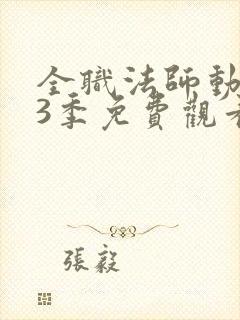 全職法師動
3季免費觀看
張毅